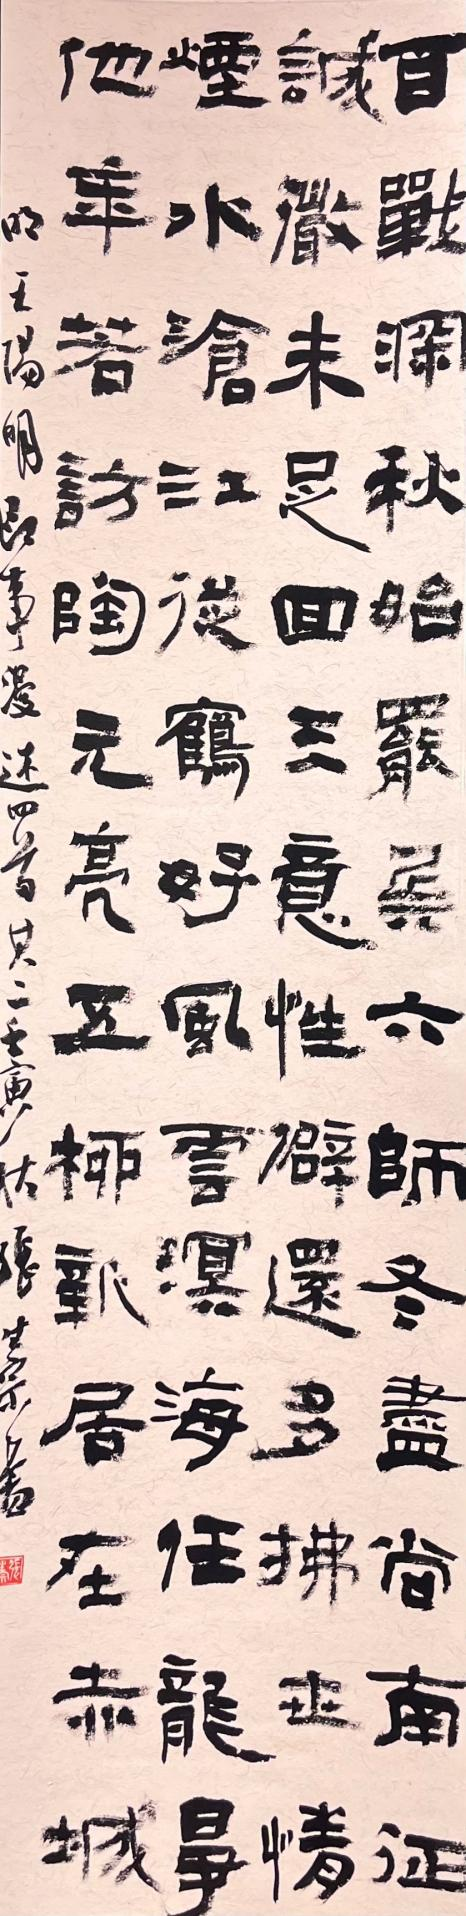 百戰深秋始罷兵六師冬盡尚南征
誠微未足回天意性僻還多拂世情
煙水滄江從鶴好風雲溟海任龍爭
他年若訪陶元亮五柳新居在赤城
明王陽明即事漫述四首其二壬寅秋張書